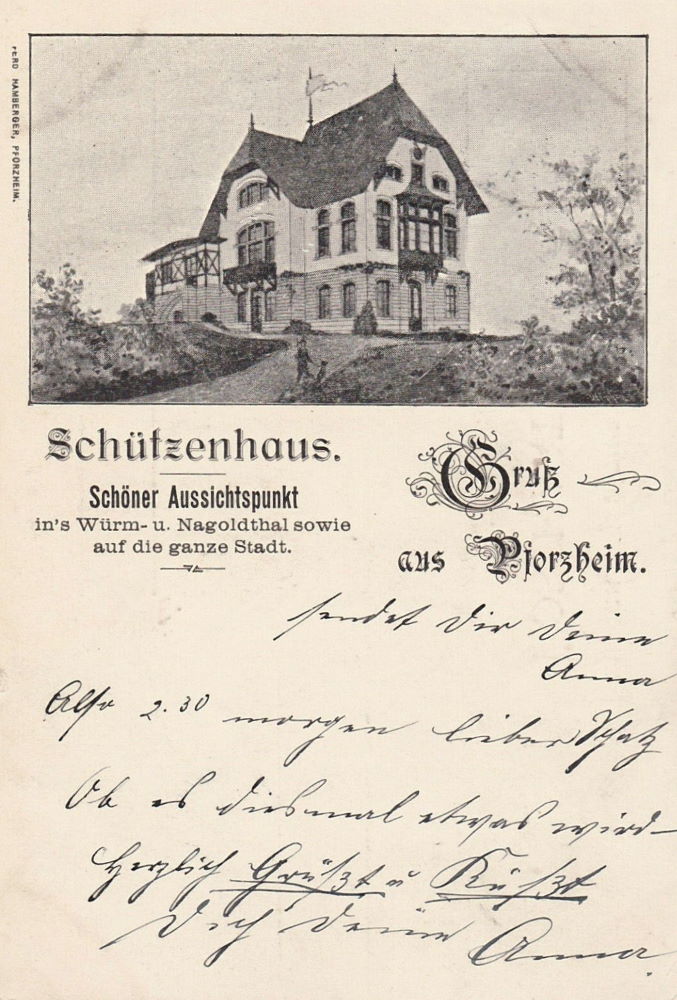 FERD HAMBERGER, PFORZHEIM.
Schützenhaus.
Schöner Aussichtspunkt
in's Würm- u. Nagoldthal sowie
auf die ganze Stadt.
Gruß
aus Pforzheim.
sendet Dir Deine
Anna
Also 2.30 morgen lieber Schatz
Ob es diesmal etwas wird –
Herzlich Grüßt u Küßt
Dich Deine Anna